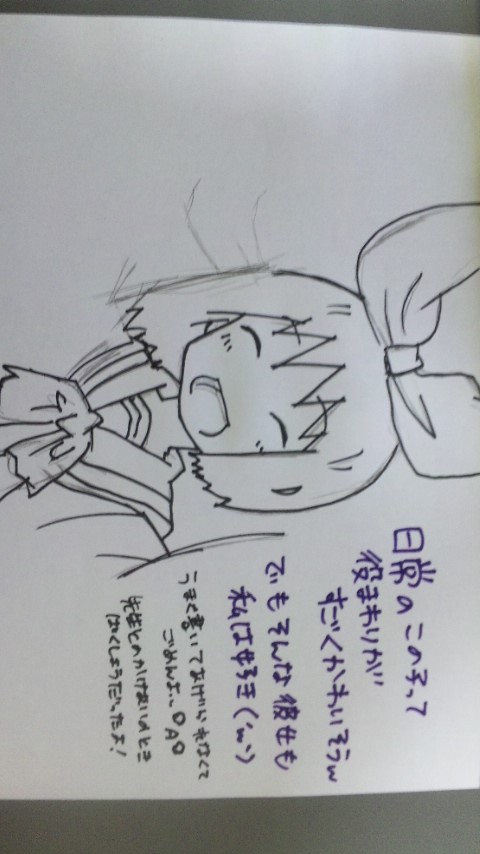 日常のこの子って
役まわりが
すごくかわいそうw
でもそんな彼女も
私は好き('ω')
うまく書いてあげれなくて
ごめんよ、、OAO
先生とのかけあいのとき
はくしょうだったよ!